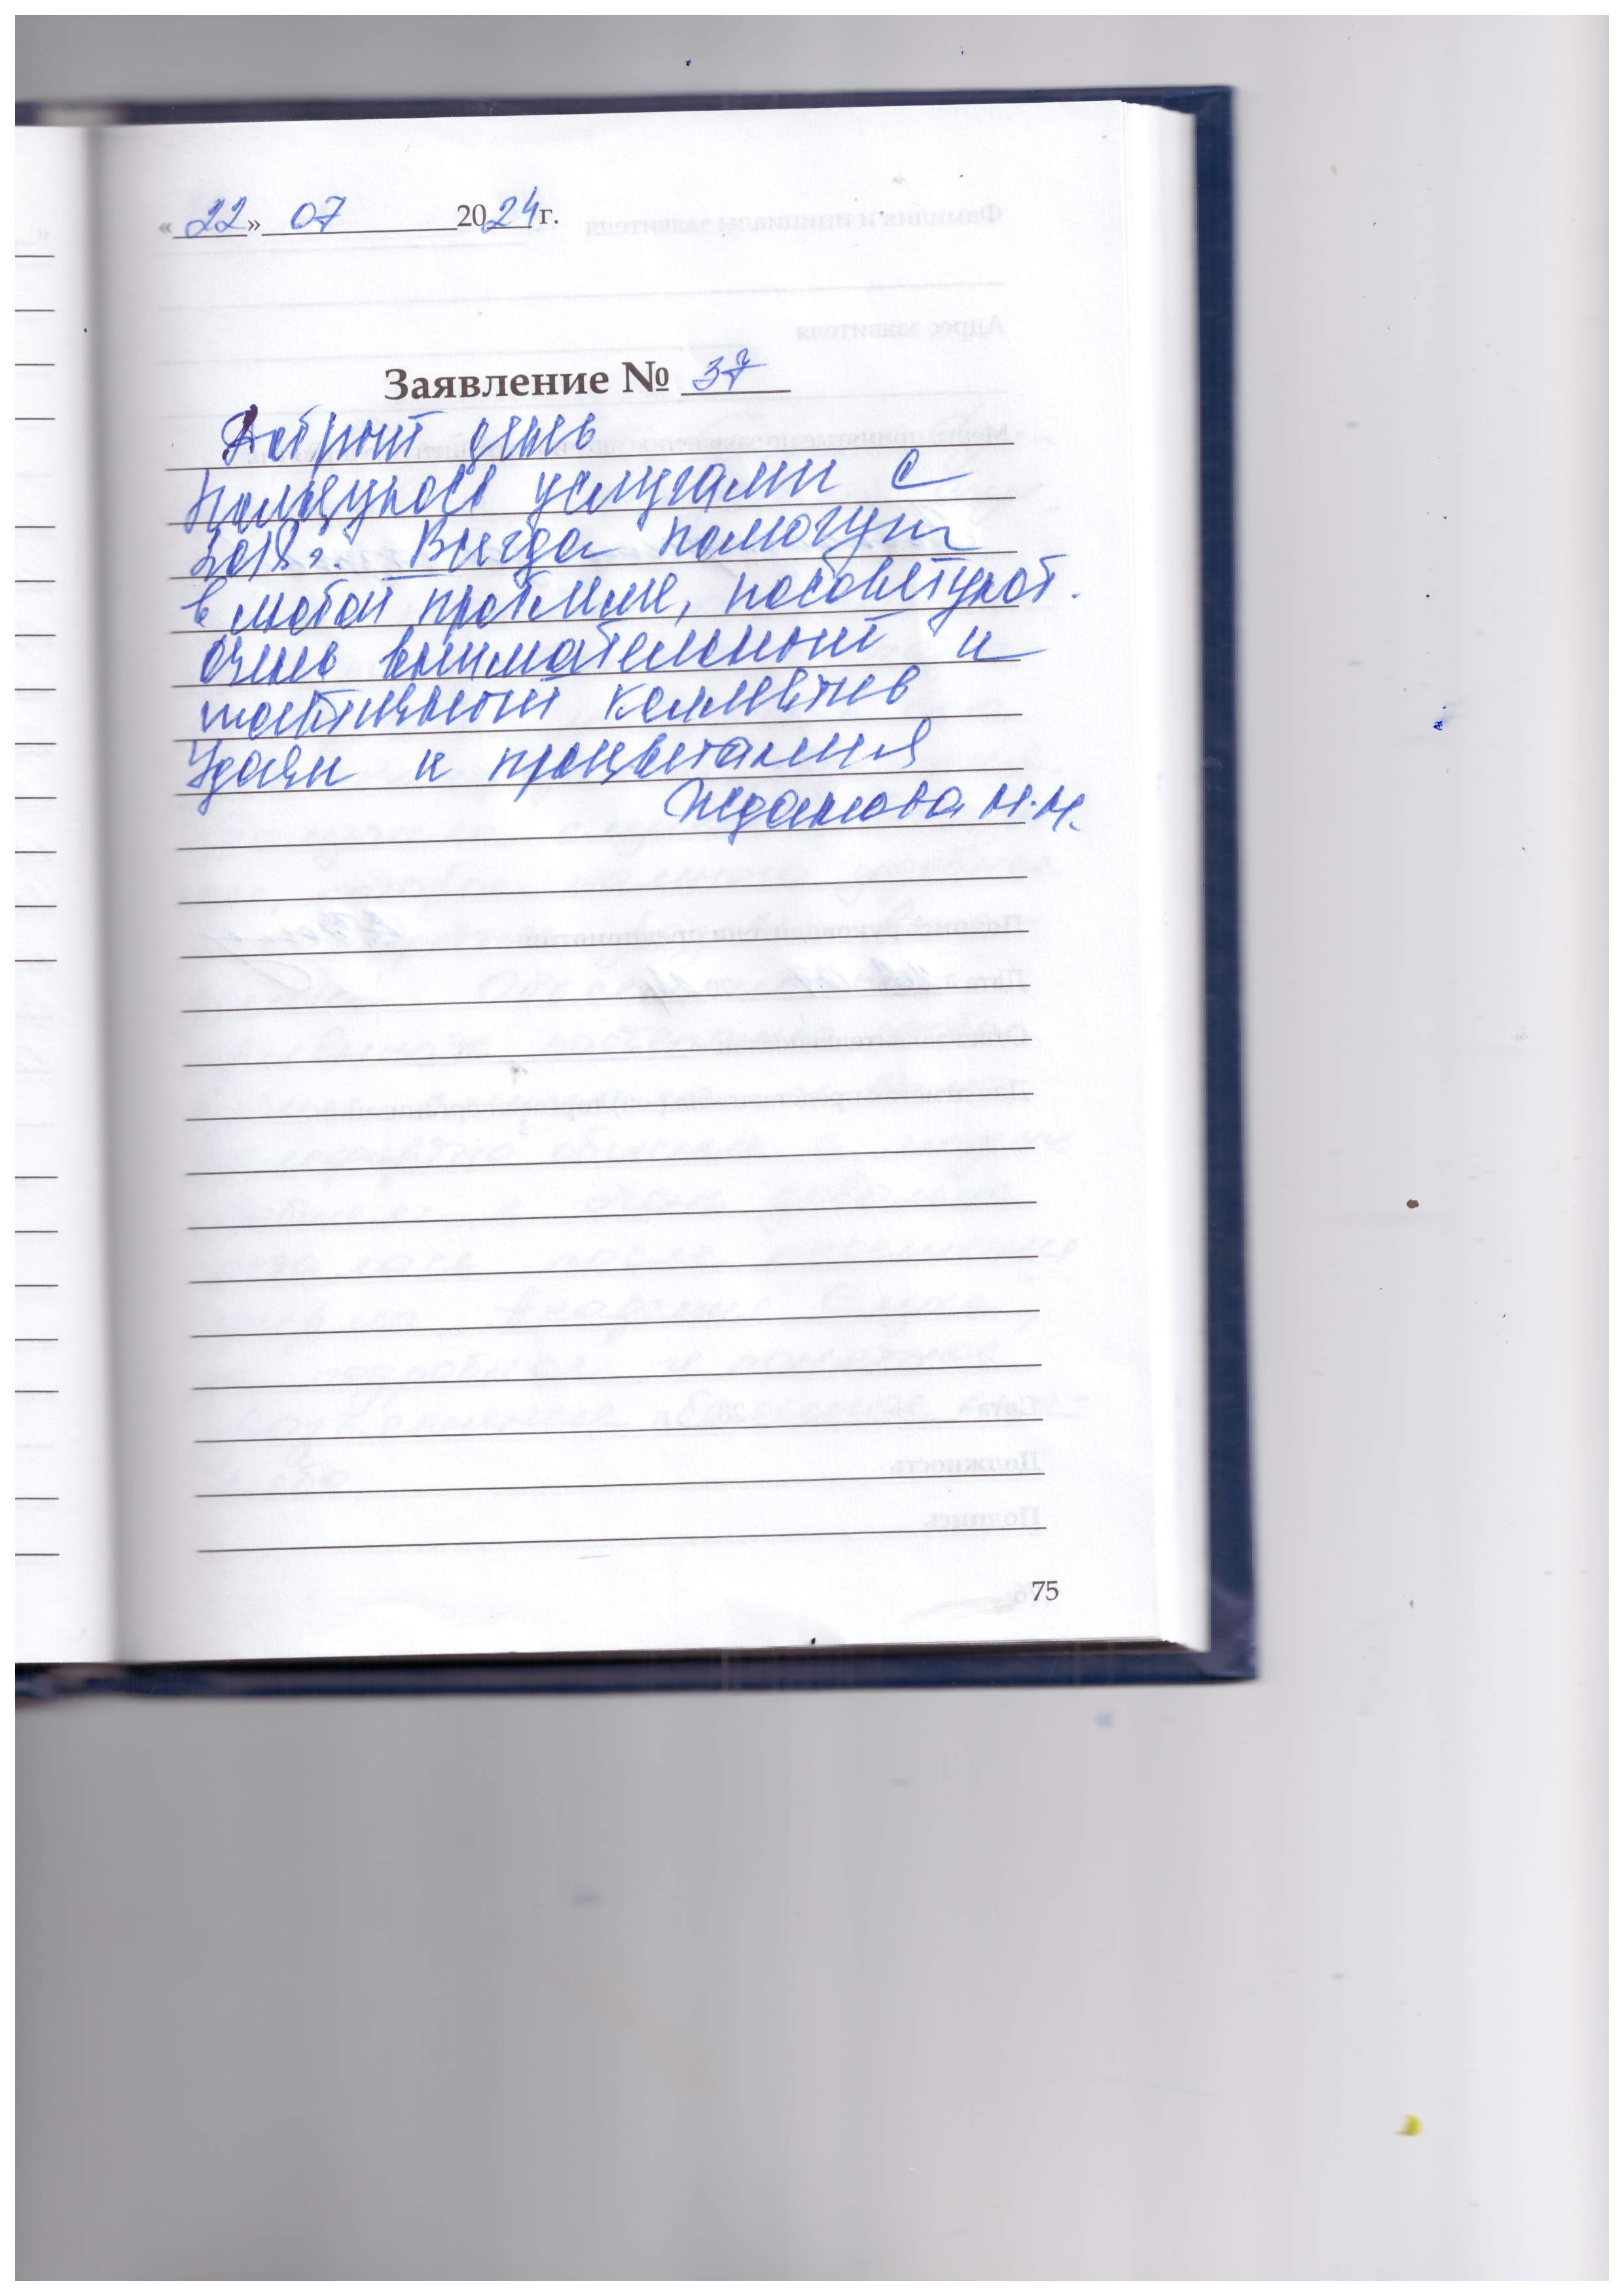 «22» 07 2024 г.
Заявление № 37
Добрый день
Пользуюсь услугами с
2018г. Всегда помогут
в любой проблеме, посоветуют.
Очень внимательный и
тактичный коллектив
Удачи и процветания
Жданова Н.Н.
75